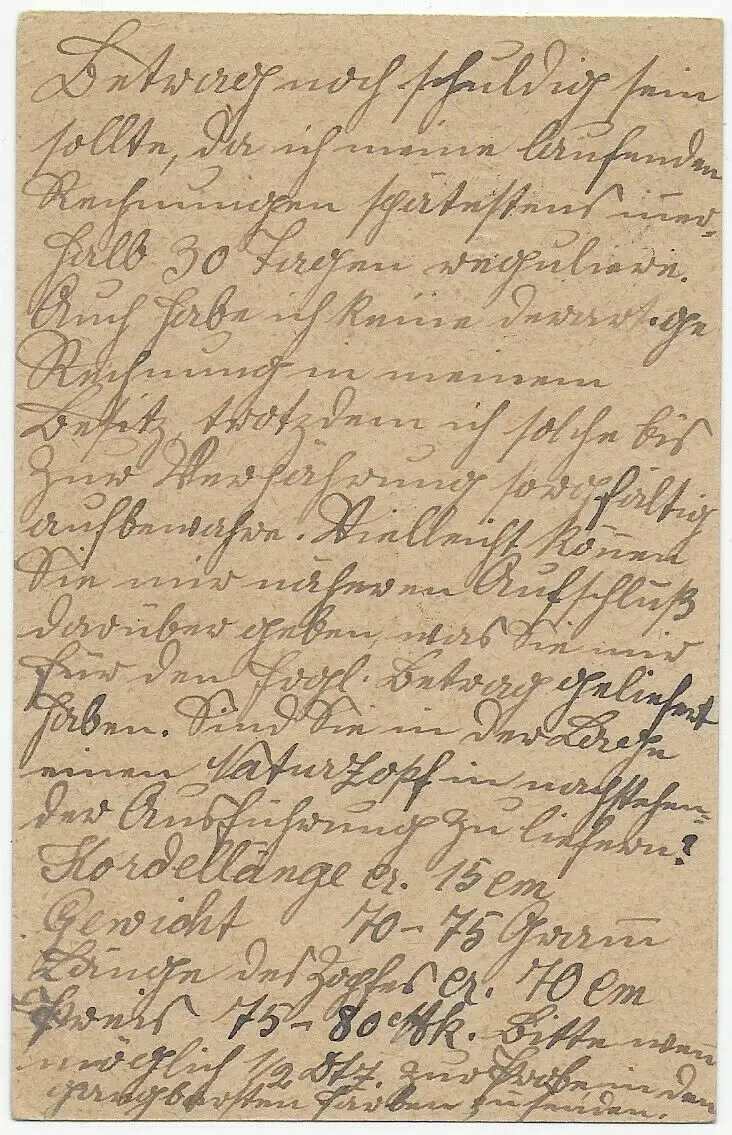 Betrag noch schuldig sein
sollte, da ich meine laufenden
Rechnungen spätestens iner-
halb 30 Tagen reguliere.
Auch habe ich keine derartige
Rechnung in meinem
Besitz trotzdem ich solche bis
zur Verjährung sorgfältig
aufbewahre. Vielleicht könen
Sie mir näheren Aufschluß
darüber geben, was Sie mir
für den frgl. Betrag geliefert
haben. Sind Sie in der Lage
einen Naturzopf in nachstehen-
der Ausführung zu liefern?
Kordellänge cr. 15 cm
Gewicht 70-75 Gram
Länge des Zopfes cr. 70 cm
Preis 75-80 Mk. Bitte wen
möglich 1/2 Dtz. zur Probe in den
gangbarsten Farben zu senden.